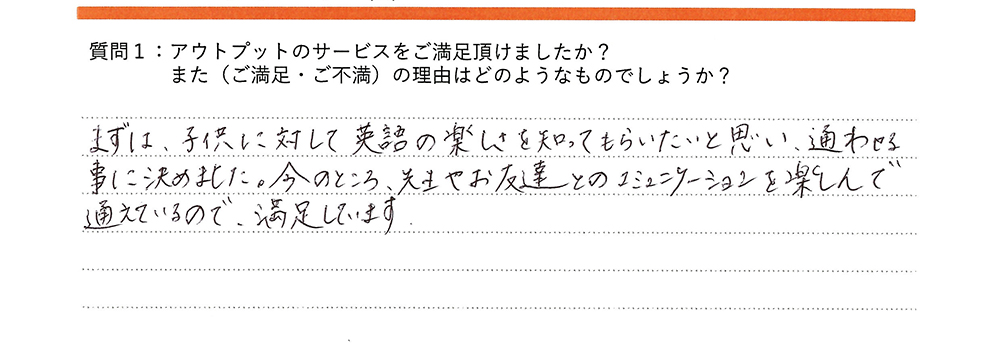 質問1：アウトプットのサービスをご満足頂けましたか？
また（ご満足・ご不満）の理由はどのようなものでしょうか？
まずは、子供に対して英語の楽しさを知ってもらいたいと思い、通わせる
事に決めました。今のところ、先生やお友達とのコミュニケーションを楽しんで
通えているので、満足しています.